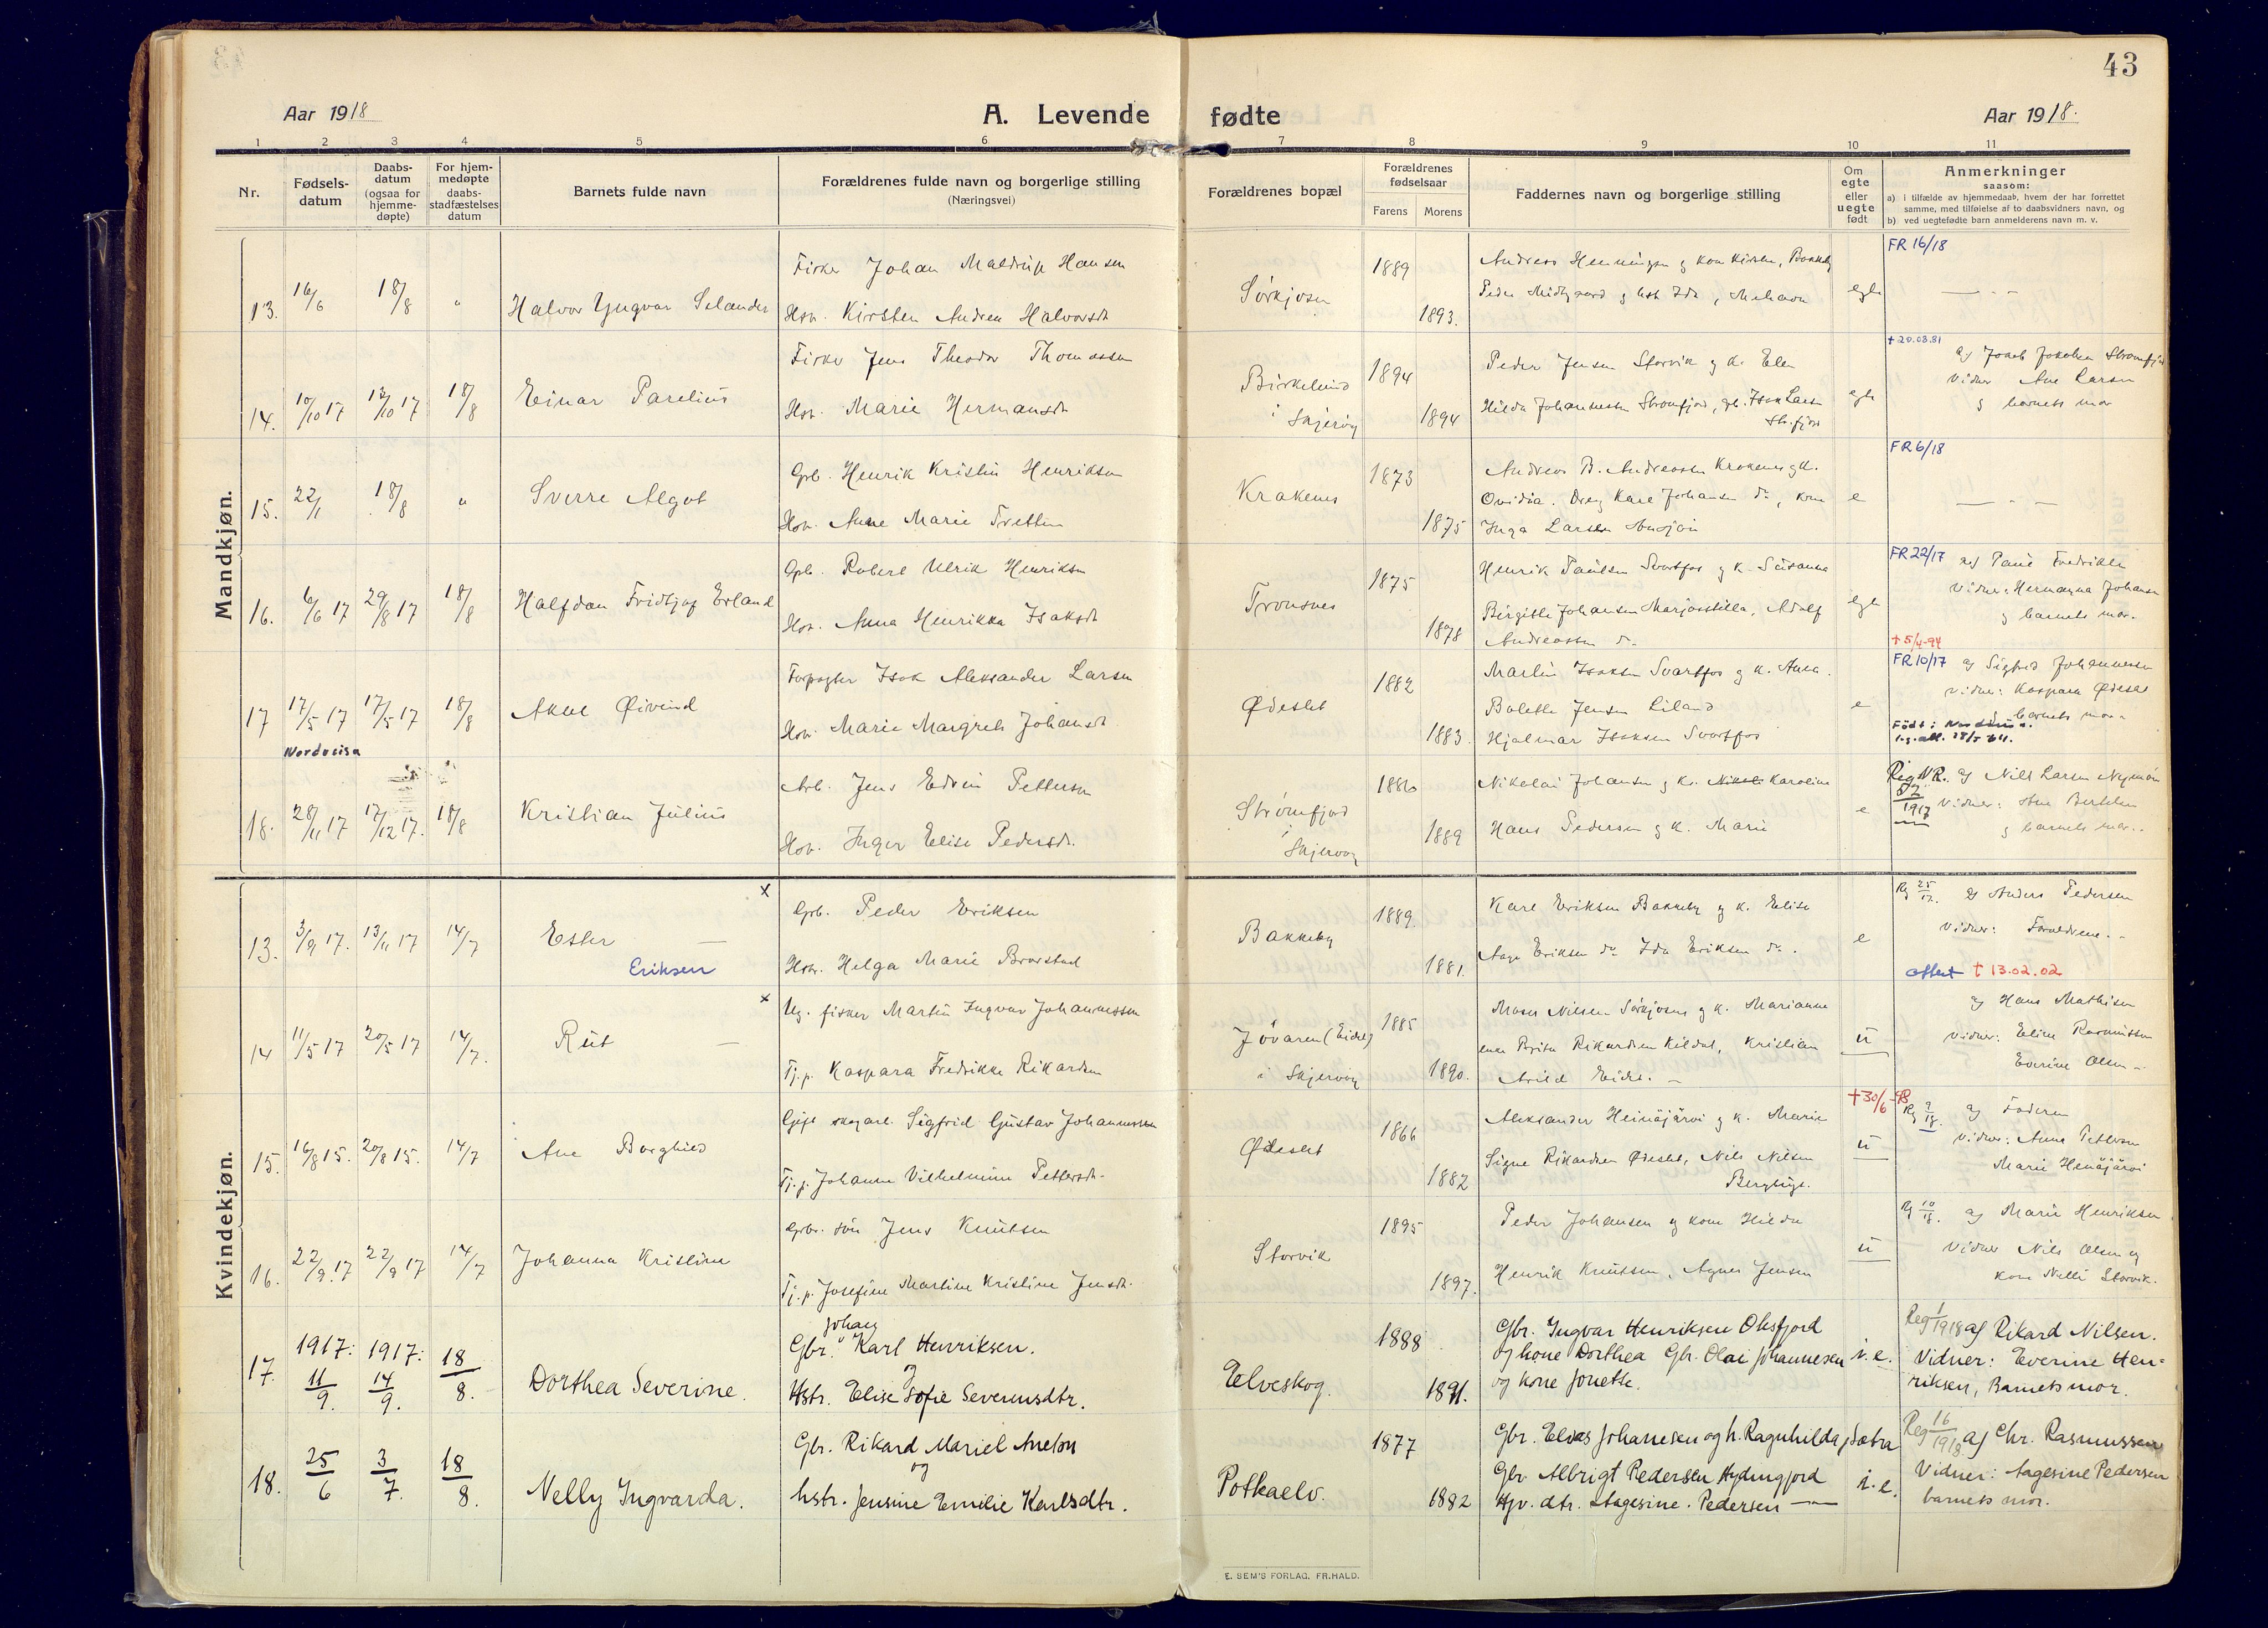 43
Aar 1918
A. Levende fødte
Aar 1918.
1 2 3 4 5 6 7 8 9 10 11
Nr.
Fødsels-
datum
Daabs-
datum
(ogsaa for
hjemme-
døpte)
For hjem-
medøpte
daabs-
stadfæstelses
datum
Barnets fulde navn
Forældrenes fulde navn og borgerlige stilling
(Næringsvei)
Forældrenes bopæl
Forældrenes
fødselsaar
Farens Morens
Faddernes navn og borgerlige stilling
Om
egte
eller
uegte
født
Anmerkninger
saasom:
a) i tilfælde av hjemmedaab, hvem der har forrettet
samme, med tilføielse af to daabsvidners navn, og
b) ved uegtefødte barn anmelderens navn m. v.
Mandkjøn.
13. 16/6 18/8 " Halvor Yngvar Selander
Fisker Johan Maldrup Hansen
Hstr. Kirsten Andrea Halvorsdt
Sörkjosen 1889 1893.
Andreas Henningsen og kone Kirsten, Bakkeby
Peder Midtgaard og hst. Ida, Mehavn
egte
FR 16/18
14. 10/10 17 13/10 17 18/8 Einar Parelius
Fisker Jens Theodor Thomassen
Hstr. Marie Hermansdt
Birkelund
i
Skjervøy
1894 1894
Peder Jensen Storvik og k. Elen
Hilda Johannessen Strømfjord, gb. Isak Larsen
Str.fjord
egte
+20.08.81
af Jakob Jakobsen Strømfjord
vidner Ane Larsen
og barnets mor
15. 22/1 18/8 " Sverre Algot
Grb. Henrik Kristin Henriksen
Hstr. Anne Marie Fretten
Krakenes 1873 1875
Andreas B. Andreassen Krakenes og k.
Ovidia. Dreng Kare Johansen do, kone
Inga Larsen
e
FR 6/18
16. 6/6 17 29/8 17 18/8 Halfdan Fridtjof Erland
Gbr. Robert Ulrik Henriksen
Hstr. Anna Henrikka Isaksdt
Tronsnes 1875 1878
Henrik Paulsen Svartfos og k. Susanna
Birgitte Johansen Marjosstilla, Adolf
Andreassen do.
egte
FR 22/17 af Paul Fredriksen
vidner: Hermanna Johansen
og barnets mor.
+5/4-94
17 17/5 17 17/5 17 18/8 Aksel Øivind
Nordreisa
Forpagter Isak Aleksander Larsen
Hstr. Marie Margrete Johansdt
Ødeslet 1882 1883.
Martin Isaksen Svartfos og k. Anna.
Bolette Jensen Liland
Hjalmar Isaksen Svartfos
e
FR 10/17 af Sigfred Johannessen
vidner: Kaspara Ødeslet
og barnets mor.
Født i Nordreisa.
18. 28/11 17 17/12 17. 18/8 Kristian Julius
Arb. Jens Edvin Pettersen
Hstr. Inger Elise Pedersdt.
Strömfjord
i
Skjervøy
1886 1889
Nikolai Johansen og k. Karoline
Hans Pedersen og k. Marie
e
Reg NR.
52
1917
af Nils Larsen Nymoen
Vidner: Ane Bertelsen
og barnets mor.
Kvindekjøn.
13. 3/9 17. 13/11 17 14/7 Ester — x
Eriksen
Grb. Peder Eriksen
Hstr. Helga Marie Brorstad
Bakkeby 1889. 1881.
Karl Eriksen Bakkeby og k. Elise
Aage Eriksen do Ida Eriksen do.
e
Rg 25/17. af Anders Pedersen
vidner: Foreldrene.
attest + 13.02.02
14 11/5 17 20/5 17 14/7. Rut — x
Ug. fisker Martin Ingvar Johannessen
Tj.p. Kaspara Fredrikke Rikardsen
Jövaren (Eidet)
i Skjervøy
1885 1890.
Moses Nilsen Sørkjosen og k. Marianne
enke Brita Rikardsen Kildal, Kristian
Arild Eidet. —
u
af Hans Mathisen
vidner: Eline Rasmussen
Everine Olsen
15. 16/8 15. 20/8 15. 14/7 Ane Borghild
Gift skogarb. Sigfrid Gustav Johannessen
Tj.p. Johanna Vilhelmine Pettersdt.
Ødeslet 1866 1882
Aleksander Heinäjärvi og k. Marie
Signe Rikardsen Ødeslet, Nils Nilsen
u
+30/6-98
Rg 9/18. af Faderen
vidner: Anna Pettersen
Marie Heinäjärvi
16. 22/9. 17 22/9 17 14/7 Johanna Kristine
Grbr. sön Jens Knutsen
Tj.p. Josefine Martine Kristine Jensdt.
Storvik 1895 1897.
Peder Johansen og kone Hilda
Henrik Knutsen, Agnes Jensen
u
Rg 10/18. af Marie Henriksen
Vidner Nils Olsen og
kone Nelli Storvik.
17. 1917: 11/9. 1917: 14/9. 18/8. Dorthea Severine.
Johan
Gbr. Karl Henriksen.
og
Hstr. Elise Sofie Severinsdtr.
Elveskog. 1888. 1891.
Gbr. Ingvar Henriksen Oksfjord
og kone Dorthea Gbr. Olai Johannesen
og kone Jonette.
i. e.
Reg 1/1918 af Rikard Nilsen.
Vidner: Everine Hen-
riksen, Barnets mor.
18. 25/6 3/7. 18/8. Nelly Ingvarda.
Gbr. Rikard Mariel Anelon
og
hstr. Jensine Emilie Karlsdtr.
Potkaelv. 1877 1882
Gbr. Elias Johannesen og h. Ragnhilda, Sætra
Gbr. Albrigt Pedersen Hydingfjord
Hjv. dtr. Aagesine. Pedersen —"—
i. e.
Reg 16/1918 af Chr. Rasmussen
Vidner: Aagesine Pedersen
barnets mor.
E. SEM'S FORLAG, FR.HALD.